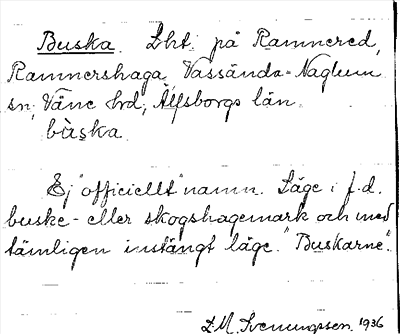 Buska. Lht. på Ramnered,
Ramnershaga Vassända-Naglum
sn, Väne hrd, Älfsborgs län.
bùska
Ej "officiellt" namn. Läge i f.d.
buske- eller skogshagemark och med
tämligen instängt läge. "Buskarne".
D.M. Svenungsson. 1936